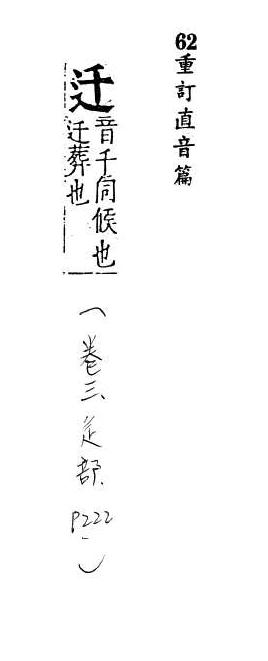 62重訂直音篇
迁
音千伺候也
迁葬也
(卷三、辵部、P222)